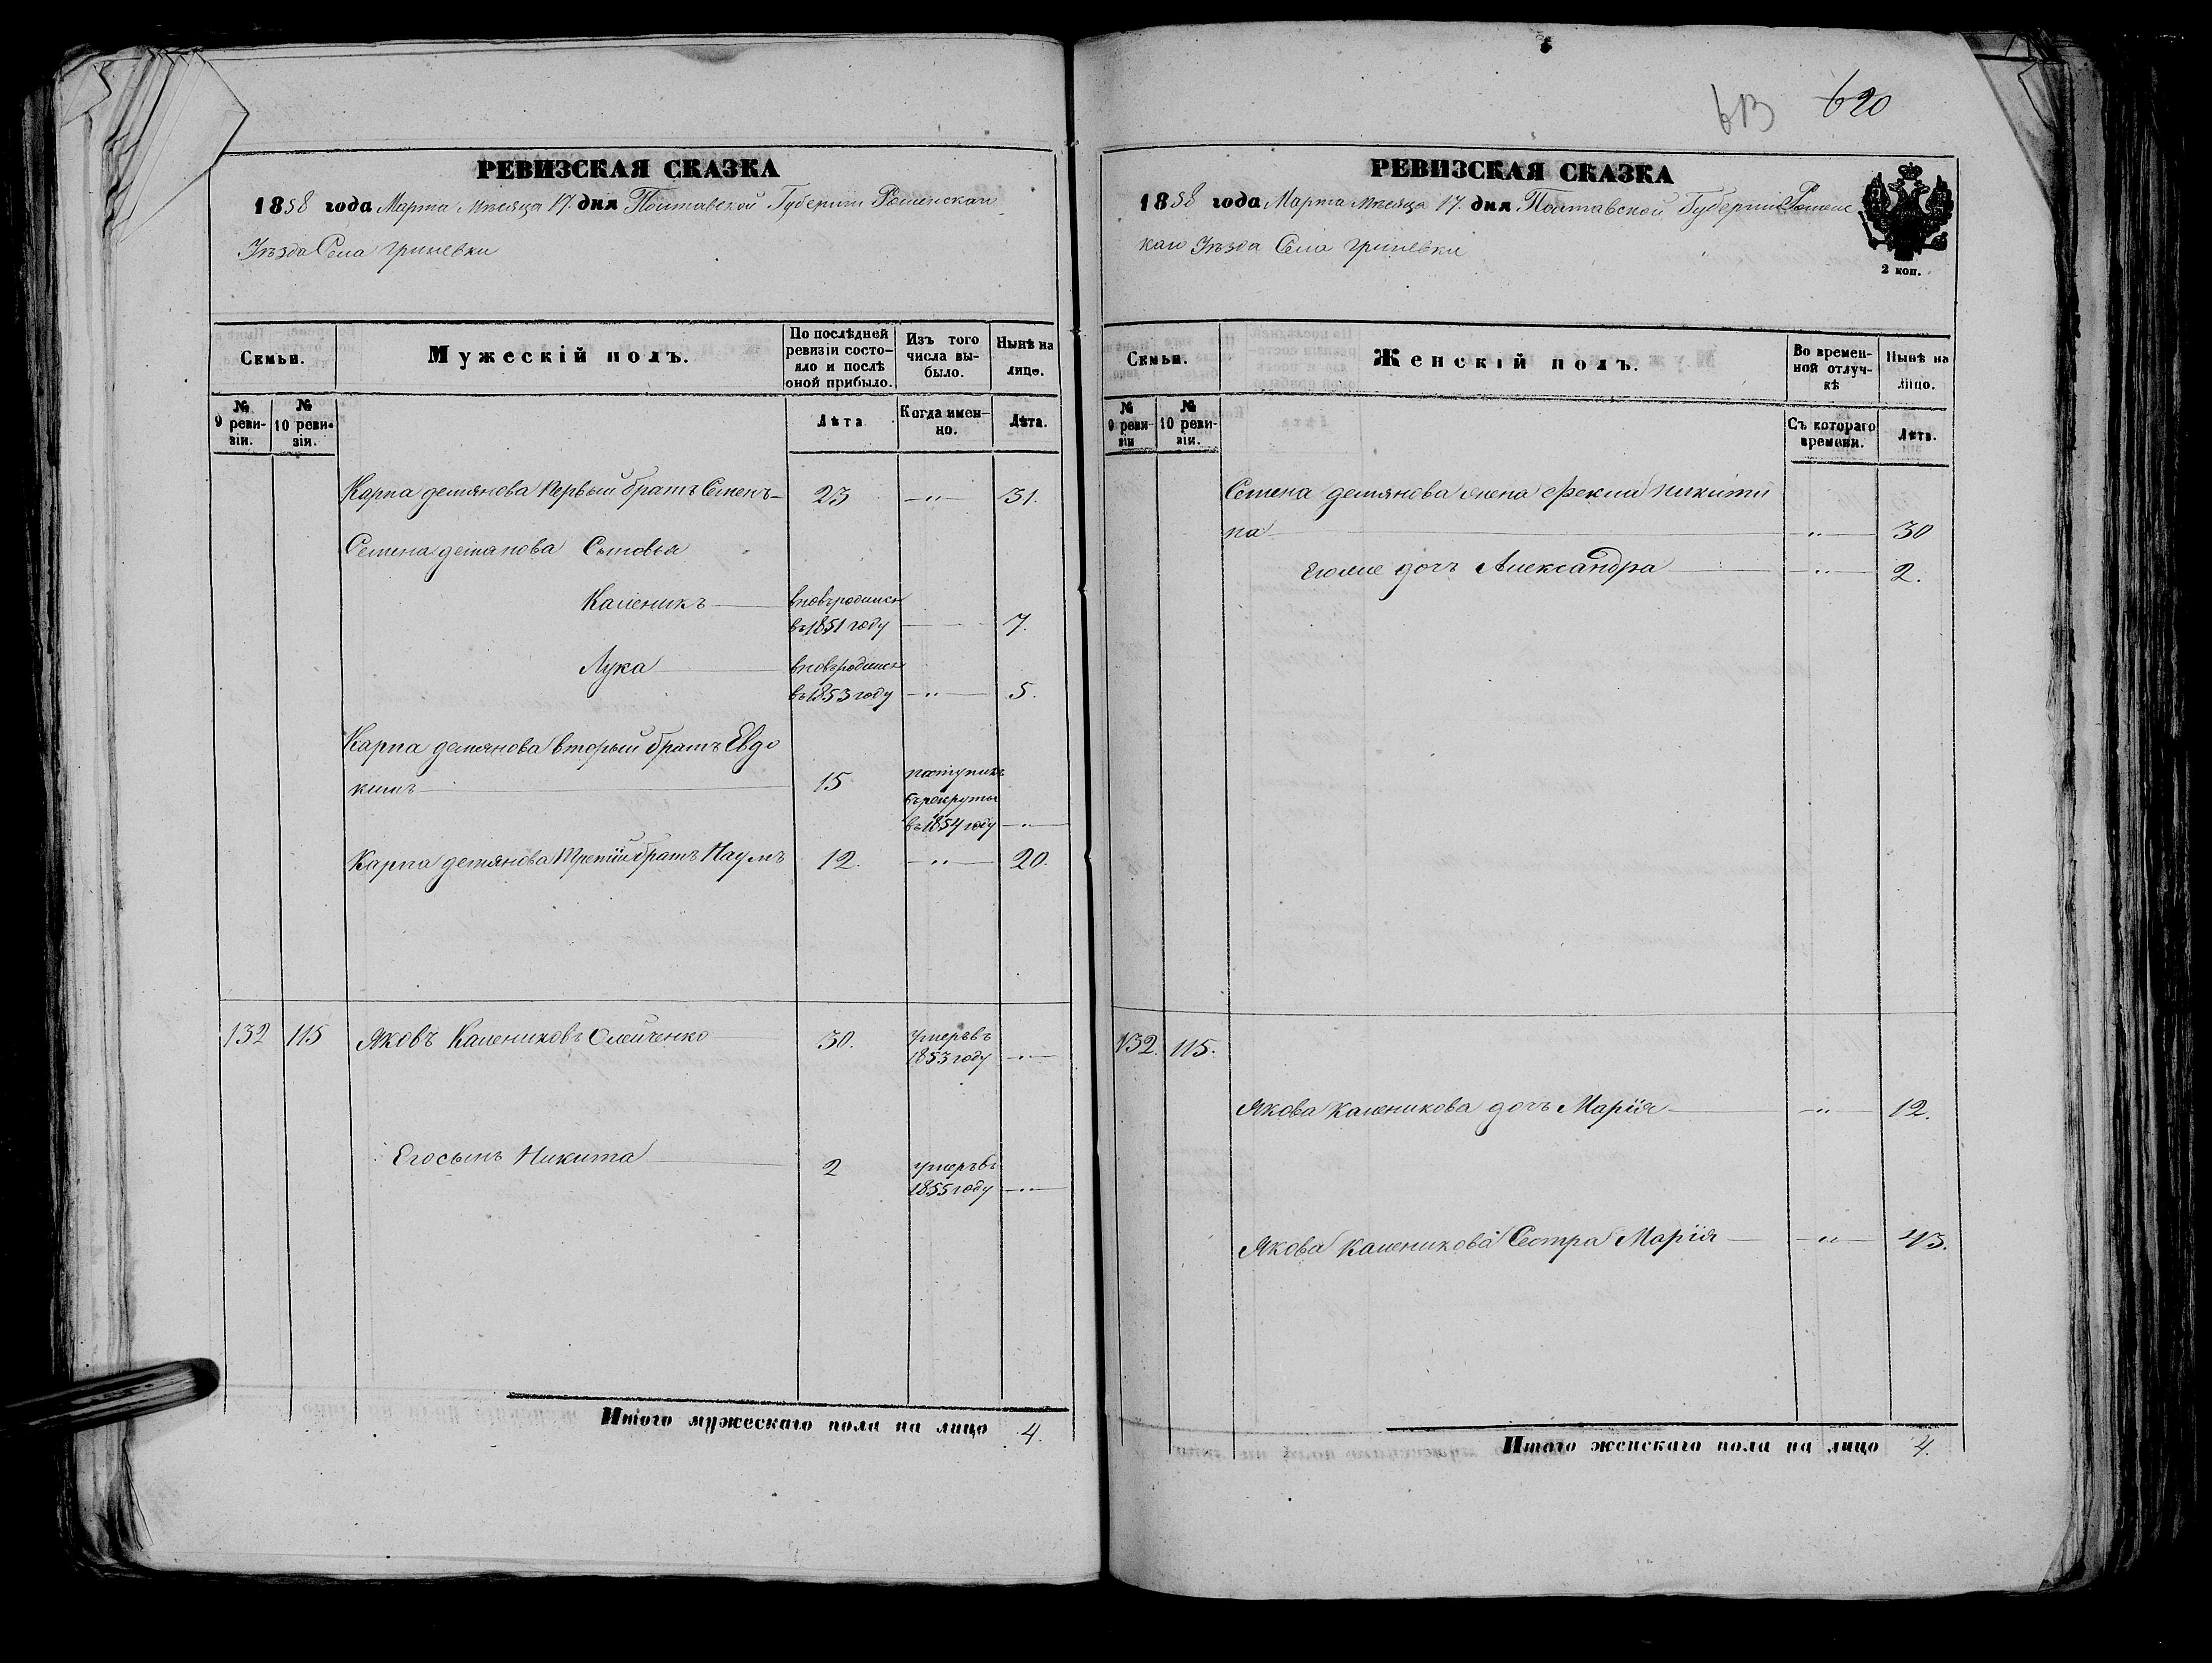 РЕВИЗСКАЯ СКАЗКА
1858 года Марта месяца 17. дня Полтавской Губернии Роменскаго
Уѣзда Села Гриневки
Семьи.
Мужескій полъ.
По послѣдней ревизіи состояло и послѣ оной прибыло.
Изъ того числа выбыло.
Нынѣ на лицо.
№ 9 ревизіи.
№ 10 ревизіи.
Лѣта
Когда именно.
Лѣта.
Карпа демянова первый братъ Семенъ 23 —"— 31.
Семена демянова Сыновья
Каленикъ вновьродился
въ 1851 году 7.
Лука вновьродился
въ 1853 году —"— 5.
Карпа демянова вторый братъ Евдо
кимъ 15 поступилъ
въ рекруты
въ 1854 году —"—
Карпа демянова Третій братъ Наумъ 12. —"— 20.
132 115 Яковъ Калениковъ Олейченко 30. умеръ въ
1853 году —"—
Его сынъ Никита 2 умеръ въ
1855 году —"—
Итого мужескаго пола на лицо 4.
613 620
РЕВИЗСКАЯ СКАЗКА
1858 года Марта месяца 17. дня Полтавской Губерніи Роменс
каго Уѣзда Села Гриневки
2 коп.
Семьи.
Женскій полъ.
Во временной отлучкѣ
Нынѣ на лицо.
№ 9 ревизіи
№ 10 ревизіи.
Съ котораго времени.
Лѣта.
Семена демянова жена Фекла Никити
на —"— 30
Егоже дочь Александра —"— 2.
132. 115.
Якова Каленикова дочь Марія —"— 12.
Якова Каленикова Сестра Марія —"— 43.
Итого женскаго пола на лицо 4.